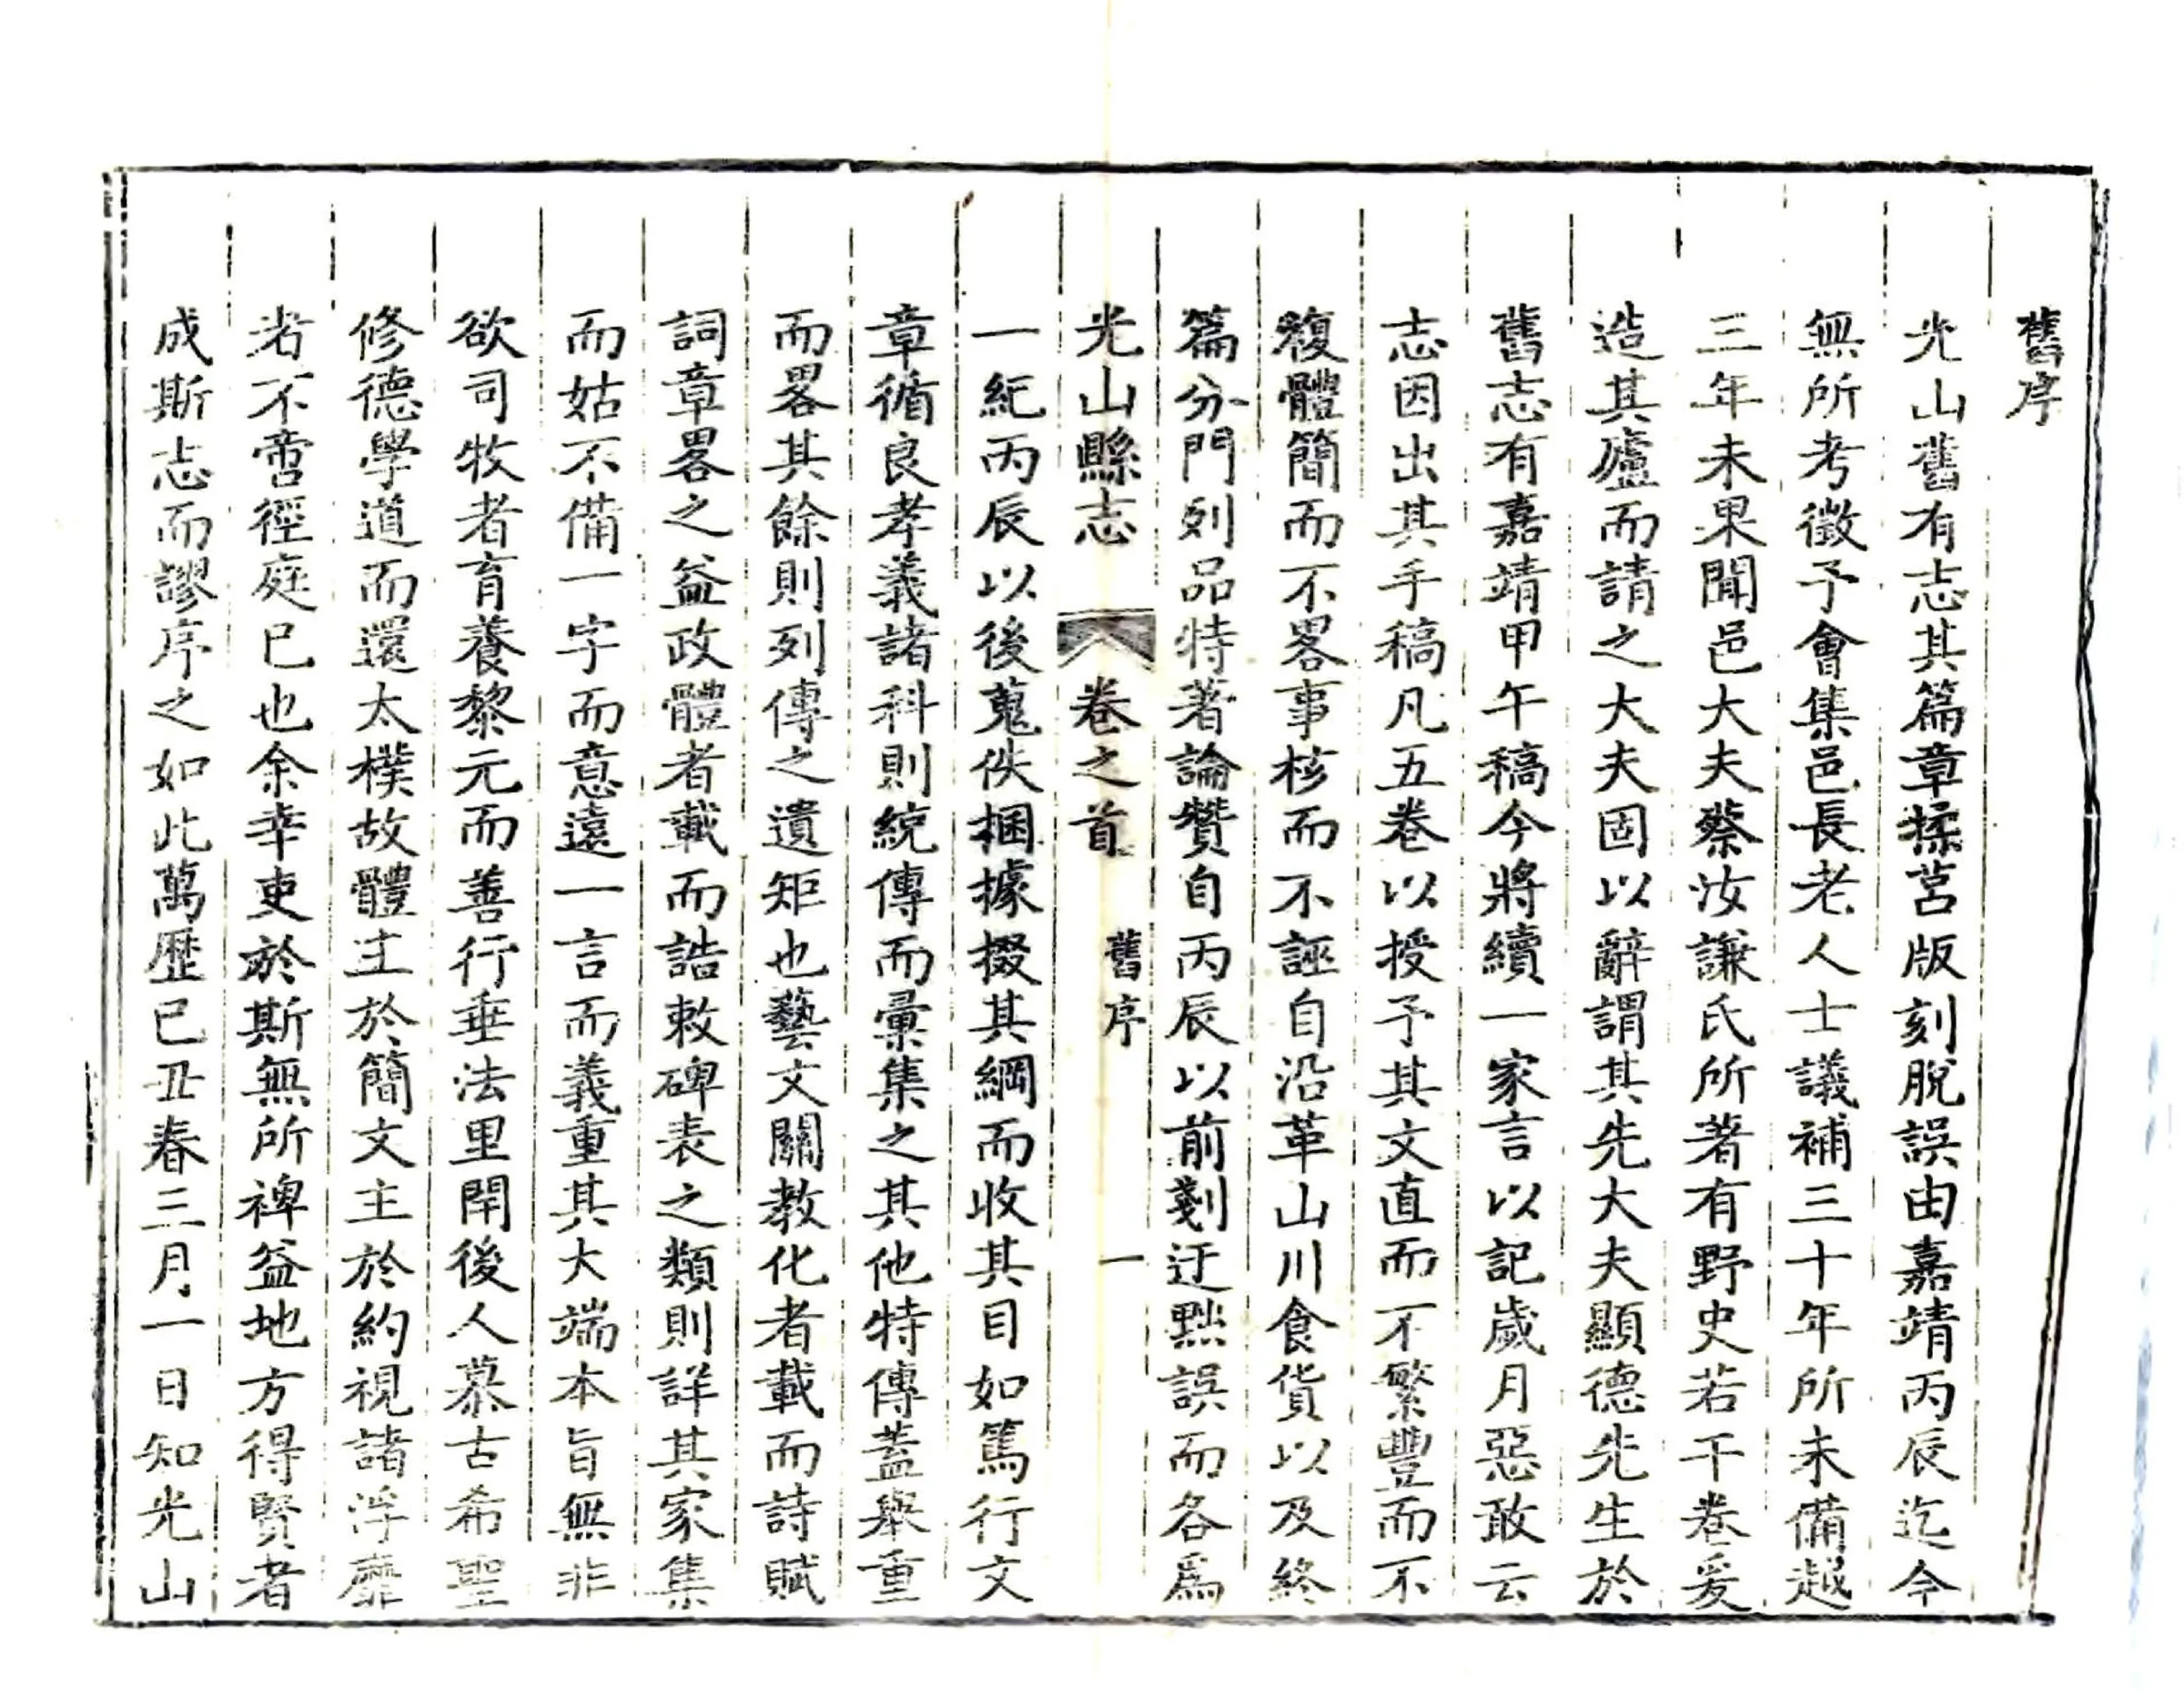 舊序
光山舊有志其篇章揉莒版刻脫誤由嘉靖丙辰迄今
無所考徵予會集邑長老人士議補三十年所未備越
三年未果聞邑大夫蔡汝謙氏所著有野史若干卷爰
造其廬而請之大夫固以辭謂其先大夫顯德先生於
舊志有嘉靖甲午稿今將續一家言以記歲月惡敢云
志因出其手稿凡五卷以授予其文直而不繁豐而不
複體簡而不畧事核而不誣自沿革山川食貨以及終
篇分門列品特著論贊自丙辰以前剗迂黜誤而各爲
光山縣志 卷之首 舊序 一
一紀丙辰以後蒐佚捆據掇其綱而收其目如篤行文
章循良孝義諸科則統傳而彙集之其他特傳蓋舉重
而畧其餘則列傳之遺矩也藝文關教化者載而詩賦
詞章畧之益政體者載而誥敕碑表之類則詳其家集
而姑不備一字而意遠一言而義重其大端本旨無非
欲司牧者育養黎元而善行垂法里閈後人慕古希聖
修德學道而還太樸故體主於簡文主於約視諸浮靡
者不啻徑庭已也余幸吏於斯無所裨益地方得賢者
成斯志而謬序之如此萬歷己丑春三月一日知光山